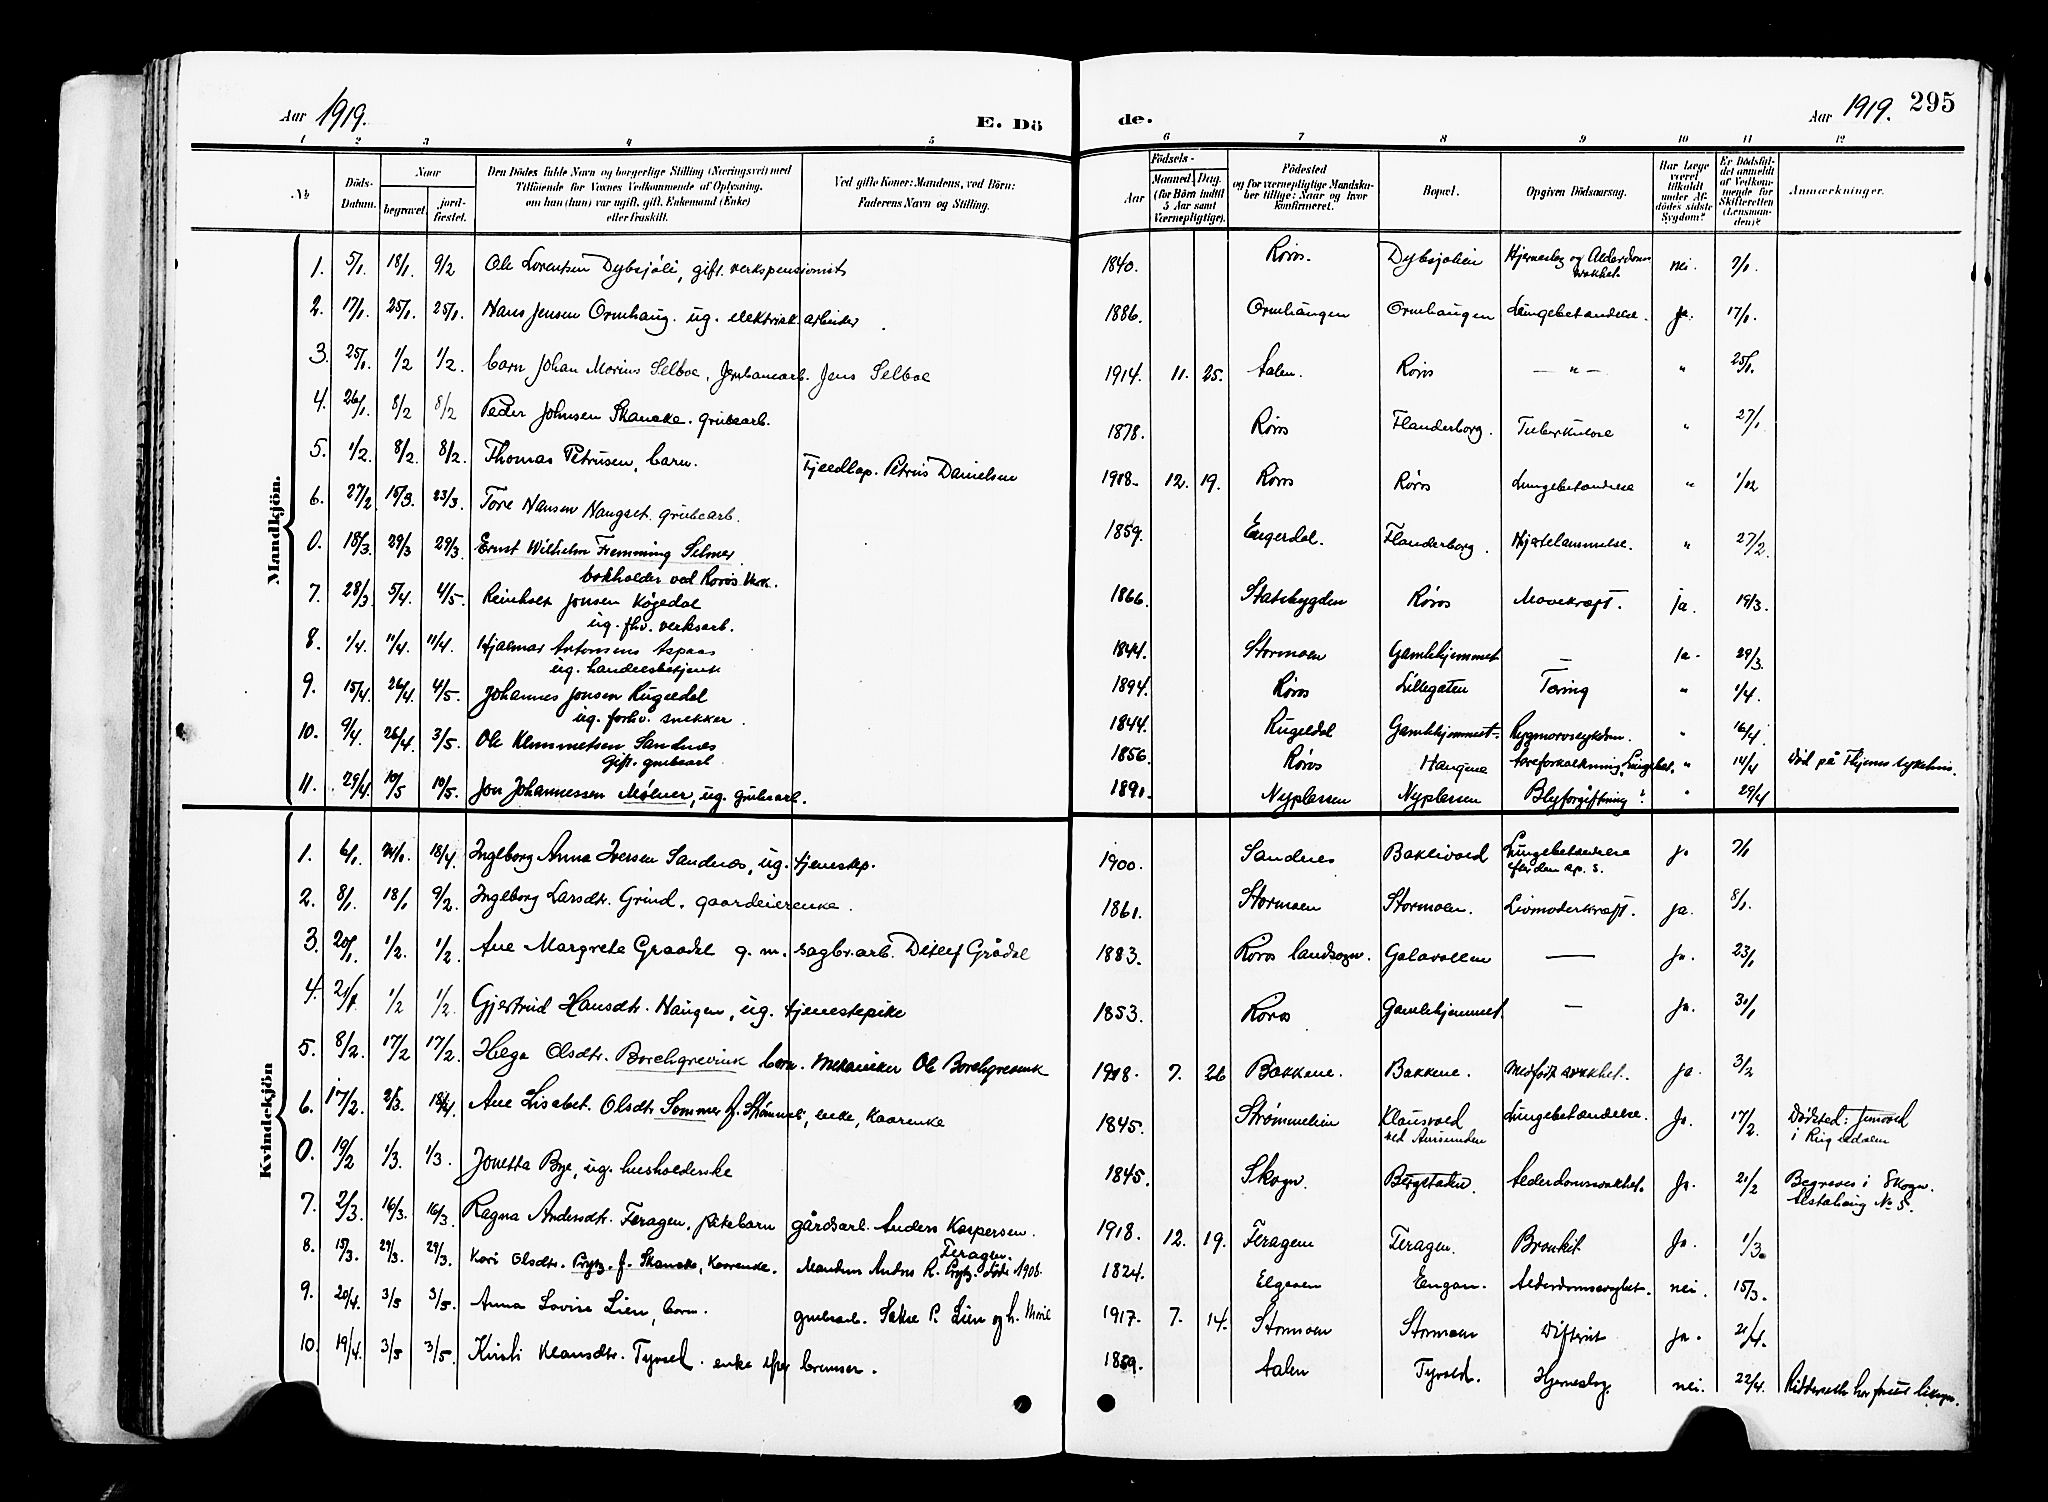 Aar 1919.
E. Dö
de.
Aar 1919. 295
1 2 3 4 5 6 7 8 9 10 11 12
No
Döds-Datum.
Naar
begravet.
jord-fæstet.
Den Dödes fulde Navn og borgerlige Stilling (Næringsvei) med
Tilföiende for Voxnes Vedkommende af Oplysning,
om han (hun) var ugift, gift, Enkemand (Enke)
eller fraskilt.
Ved gifte Koner: Mandens, ved Börn:
Faderens Navn og Stilling.
Födsels-
Aar
Maaned. Dag.
(for Börn indtil
5 Aar samt
Værnepligtige).
Födested
og for værnepligtige Mandska-
ber tillige: Naar og hvor
konfirmeret.
Bopæl.
Opgiven Dödsaarsag.
Har Læge
været
tilkaldt
under Af-
dödes sidste
Sygdom?
Er Dödsfal-
det anmeldt
af Vedkom-
mende for
Skifteretten
(Lensman-
den)?
Anmærkninger.
Mandkjön.
1. 5/1. 18/1. 9/2 Ole Lorentsen Dybsjöli, gift. verkspensionist 1840. Røros. Dybsjølien Hjerneslag og Alderdoms nei. 7/1.
svakhet.
2. 17/1. 25/1. 25/1. Hans Jensen Ormhaug. ug. elektrisk arbeider. 1886. Ormhaugen Ormhaugen Lungebetændelse. Ja. 17/1.
3. 25/1. 1/2 1/2. barn Johan Marius Selboe, Jernbanearb. Jens Selboe 1914. 11. 25. Aalen. Røros — " — " 25/1.
4. 26/1. 8/2 8/2 Peder Johnsen Skancke. grubearb. 1878. Røros Flanderborg. Tuberkulose " 27/1
5. 1/2. 8/2. 8/2. Thomas Petrusen, barn. Fjeldlap. Petrus Danielsen 1918. 12. 19. Røros Røros Lungebetændelse " 1/02
6. 27/2 15/3. 23/3. Tore Hansen Haugset. grubearb. 1859. Engerdal. Flanderborg. Hjertelammelse. " 27/2.
0. 18/3. 29/3 29/3. Ernst Wilhelm Flemming Selmer 1866. Statsbygden Røros Mavekræft. ja. 19/3.
bokholder ved Røros Verk.
7. 28/3. 5/4. 4/5. Jonsen Kögedal 1844. Stormoen Gamlehjemmet — ja. 29/3.
ug. fhv. verksarb.
8. 1/4. 11/4. 11/4. Hjalmar Antonsens Aspaas 1894. Røros Lillegaten Tæring " 1/4.
ug. handelsbetjent
9. 15/4. 26/4 4/5. Johannes Jonsen Rugeldal 1844. Rugeldal Gamlehjemmet. Rygmarvssykdom. " 16/4.
ug. forhv. snekker.
10. 9/4. 26/4 3/5. Ole Klemmetsen Sandnes 1856. Røros Haugene Aareforkalkning, Lungebet. " 14/4 Död på sykehus.
Gift. grubearb
11. 29/4. 10/5 10/5. Jon Johannessen Mølner, ug. grubearb. 1890. Nyplassen Nyplassen Blyforgiftning? " 29/4
Kvindekjön
1. 6/1. 24/1. 18/4. Ingeborg Anna Iversen Sandnes, ug. tjenestep. 1900. Sandnes Bakkevold Lungebetændelse ja 7/1
efter den sp. s.
2. 8/1. 18/1 9/2. Ingeborg Larsdtr. Grind. gaardeierenke. 1861. Stormoen Stormoen. Livmoderkræft. ja. 8/1.
3. 20/1. 1/2. 1/2. Ane Margreta Graadal g. m. sagbr.arb. Ditlef Grådal 1883. Røros landsogn. Galavollen — Ja. 23/1
4. 21/1 1/2 1/2. Gjertrud Hansdtr. Haugen, ug. tjenestepike 1853. Røros Gamlehjemmet. — Ja. 31/1
5. 8/2. 17/2 17/2. Helga Olsdtr. Borchgrevink barn. Mekaniker Ole Borchgrevink 1918. 7. 26 Bakkene. Bakkene. Medfødt svakhet. ja 3/2
6. 17/2. 2/3. 18/4. Ane Lisabet. Olsdtr Sommer f. Strömmeli, enke, Kaarenke 1845. Strømmelien Klausvold Lungebetændelse. Ja. 17/2. Dødsted:
ved Aursunden i Rugeldalen
0. 19/2 1/3. 1/3. Jonetta Bye, ug. husholderske 1845. Skogn. Bergstaden. Alderdomssvakhet. Ja. 21/2 Begraves i Skogn.
Alstahaug No 5.
7. 2/3. 16/3. 16/3. Ragna Andersdtr. Feragen, pikebarn gårdsarb. Anders Kaspersen. 1918. 12. 19. Feragen Feragen. Bronkit Ja. 1/3.
Feragen.
8. 15/3. 29/3. 29/3. Kari Olsdtr. Prytz. f. Skancke, Kaarenke. Manden Anders R. Prytz. död 1906. 1824. Elgaaen Engan. Alderdomssvaghet. nei. 15/3.
9. 20/4. 3/5 3/5. Anna Lovise Lien, barn. grubearb. P. Lien og h. 1917. 7. 14. Stormoen Stormoen Difterit ja. 21/4.
10. 19/4. 3/5 3/5. Kirsti Klausdtr. Tyvold. enke efter bremser. 1859. Aalen Tyvold. Hjerneslag. nei. 22/4.